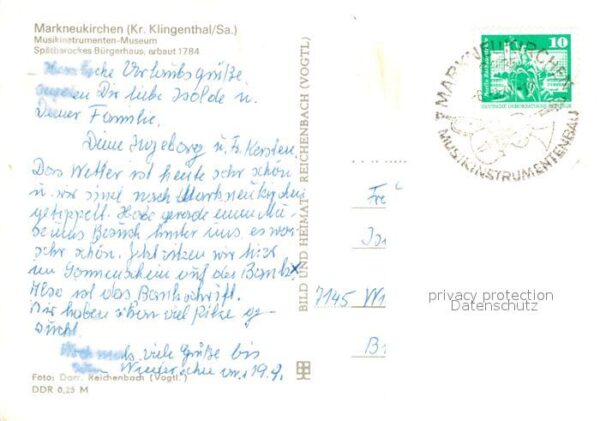 Markneukirchen (Kr. Klingenthal/Sa.)
Musikinstrumenten-Museum
Spätbarockes Bürgerhaus, erbaut 1784
Urlaubsgrüße
Dir liebe Isolde u.
Deiner Familie.
Deine Ingeborg u. Fr. Kersten.
Das Wetter ist heute sehr schön
u. wir sind nach Markneukirchen
getippelt. Habe gerade einen Mu-
seums Besuch hinter uns, es war
sehr schön. Jetzt sitzen wir hier
im Sonnenschein auf der Bank x
Also ist das Bankschrift.
Wir haben schon viel Pilze ge-
sucht.
Nochmals viele Grüße bis
Wiedersehen am 19.9.
Foto: Darr, Reichenbach (Vogtl.)
DDR 0,25 M
BILD UND HEIMAT REICHENBACH (VOGTL)
10
DEUTSCHE DEMOKRATISCHE REPUBLIK
MARKNEUKIRCHEN
MUSIKINSTRUMENTENBAU
7145 Wi
privacy protection
Datenschutz